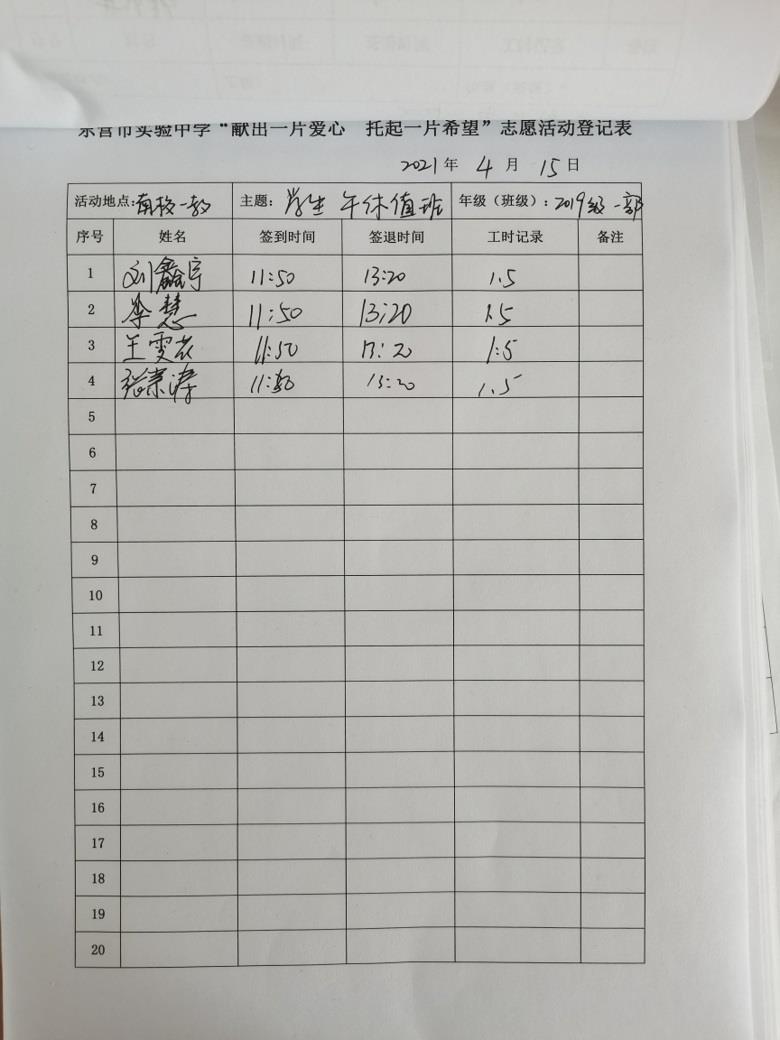 东营市实验中学“献出一片爱心 托起一片希望”志愿活动登记表
2021年 4月 15日
活动地点:南校一教 主题: 学生午休值班 年级(班级):2019级一部
序号 姓名 签到时间 签退时间 工时记录 备注
1 刘鑫宇 11:50 13:20 1.5
2 李慧 11:50 13:20 1.5
3 王雯 11:50 13:20 1.5
4 张 涛 11:50 13:20 1.5
5
6
7
8
9
10
11
12
13
14
15
16
17
18
19
20